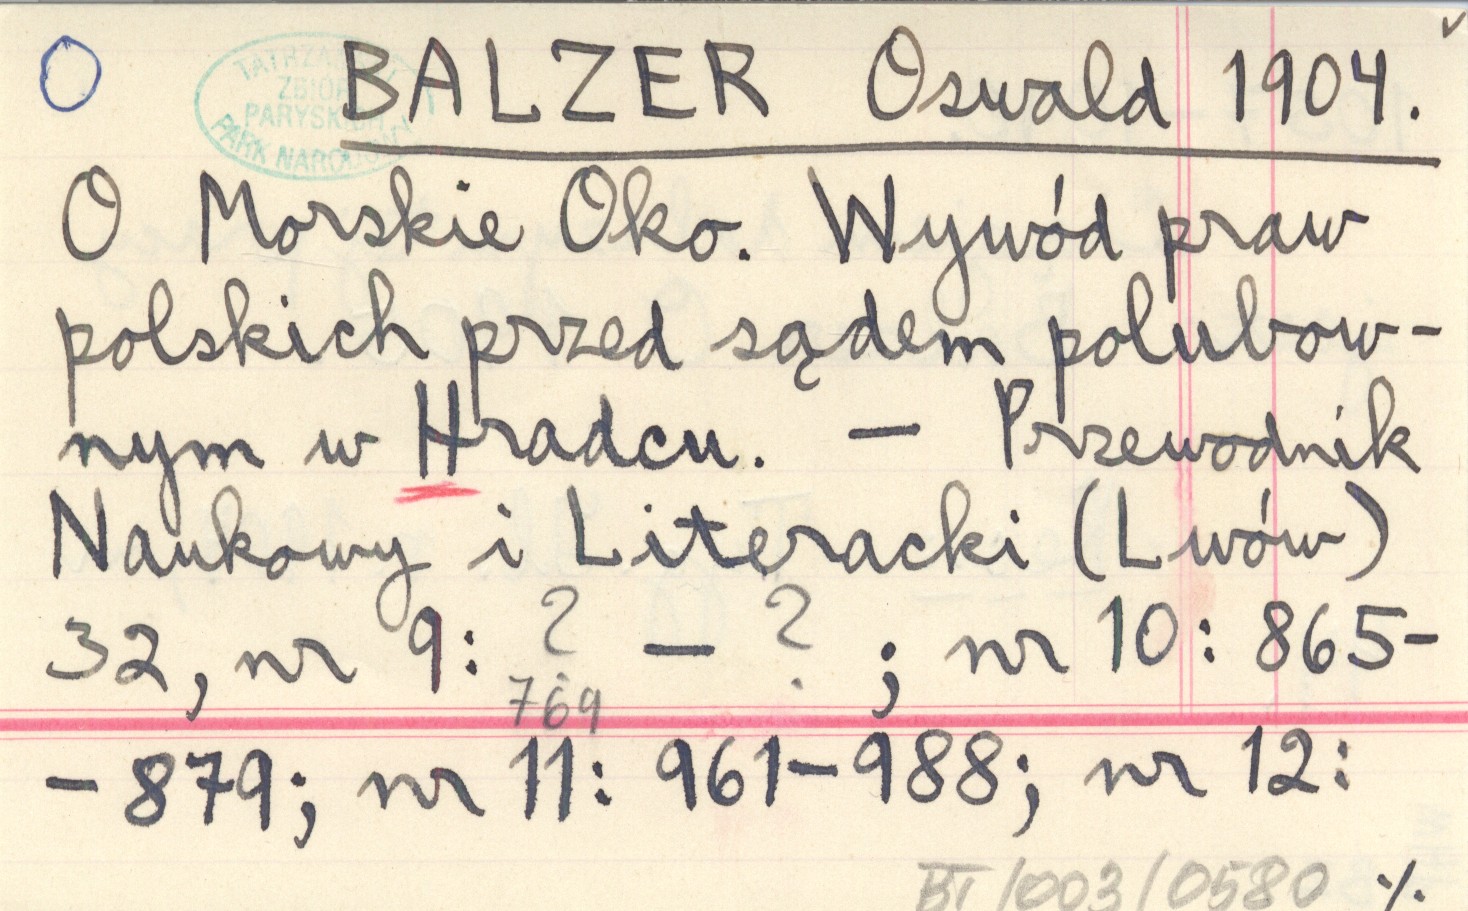 O BALZER Oswald 1904.
TATRZAŃSKI
ZBIORY
PARYSKICH
PARK NARODOWY
O Morskie Oko. Wywód praw
polskich przed sądem polubow-
nym w Hradcu. — Przewodnik
Naukowy i Literacki (Lwów)
32, nr 9: ? — ? ; nr 10: 865-
769
- 879; nr 11: 961-988; nr 12:
BT/003/0580 ·/.